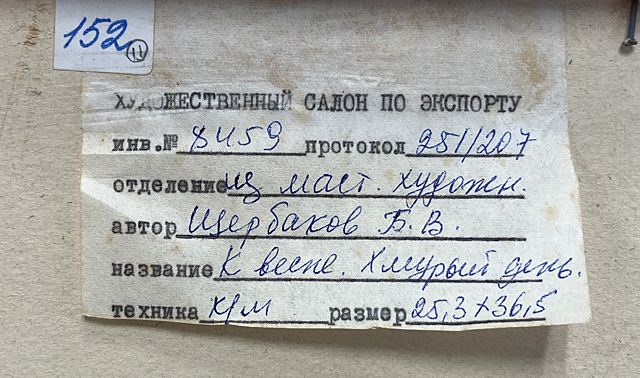 152 (11)
ХУДОЖЕСТВЕННЫЙ САЛОН ПО ЭКСПОРТУ
инв.№ 8459 протокол 251/207
отделение из маст. художн.
автор Щербаков Б.В.
название К весне. Хмурый день.
техника х/м размер 25,3х36,5